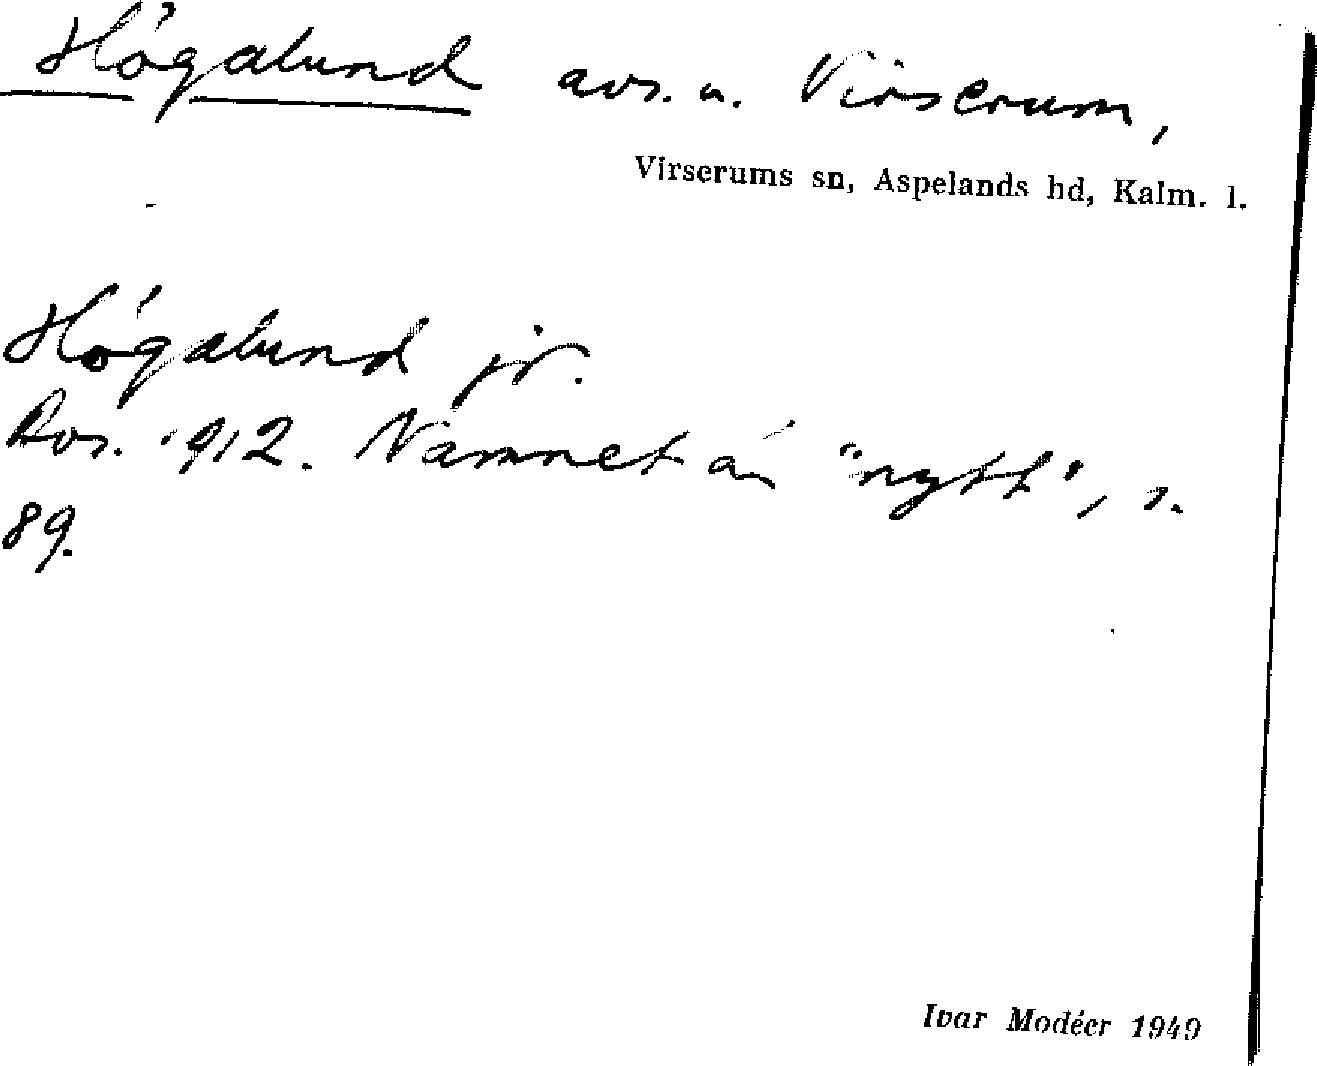 Högalund avs. u. Virserum,
Virserums sn, Aspelands hd, Kalm. l.
Högalund jr.
Avs. 1912. Namnet är "nytt", s.
89.
Ivar Modéer 1949